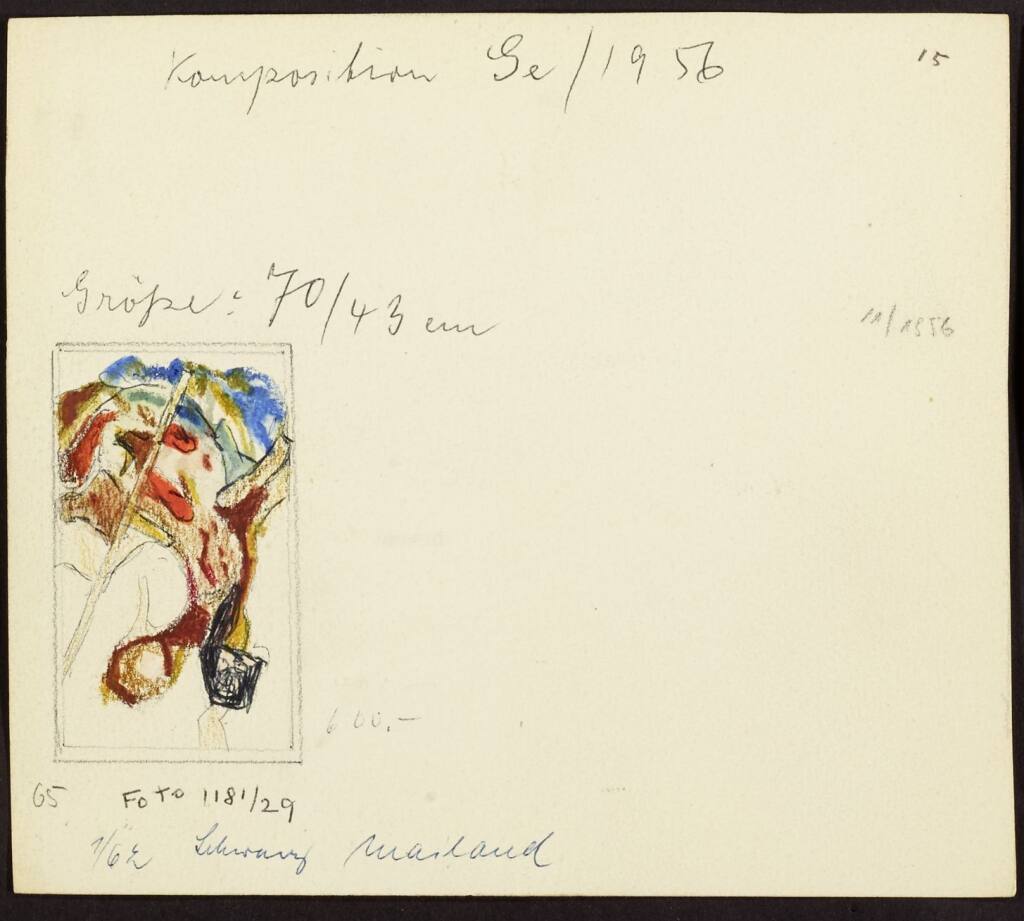 Komposition Ge/1956
15
Größe: 70/43 cm
11/1956
600.-
65 Foto 1181/29
1/62 Schwarz Mailand